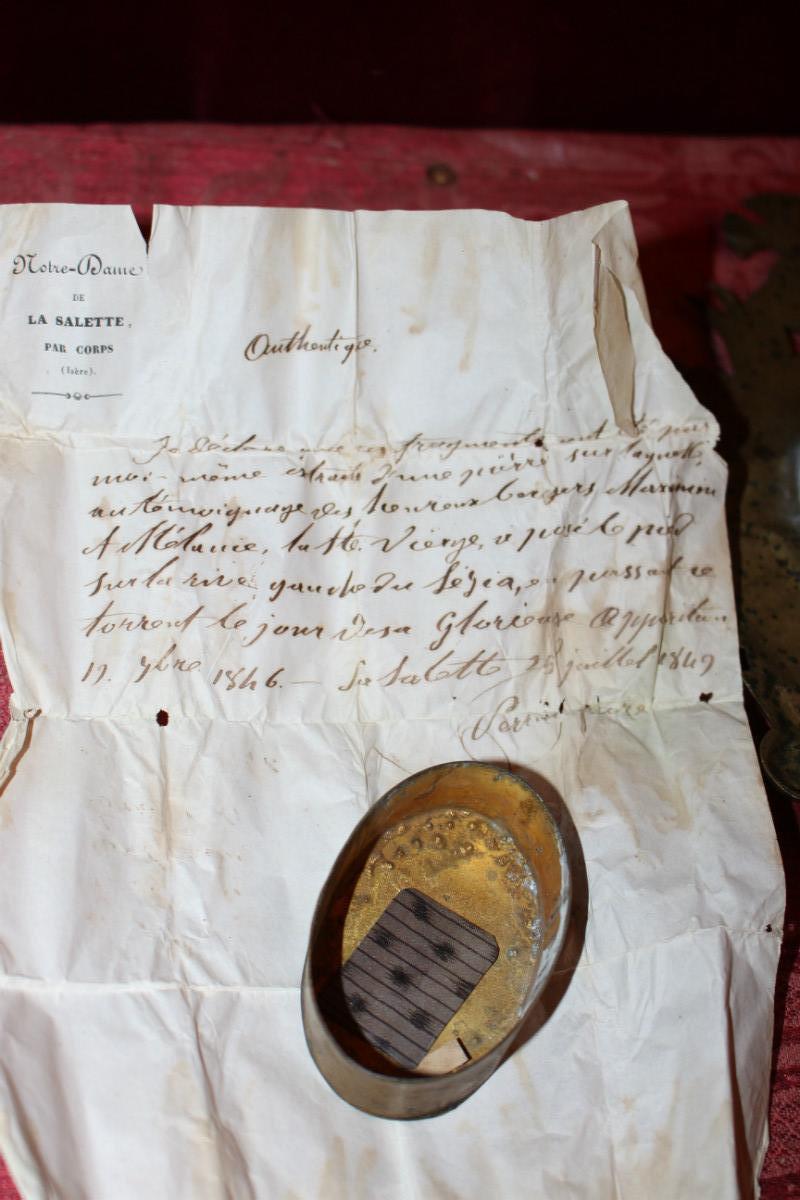 Notre-Dame
DE
LA SALETTE,
PAR CORPS
(Isère).
Authentique.
Je déclare que ces fragments ont été par
moi-même extraits d'une pierre sur laquelle,
au témoignage des heureux bergers Maximin
& Mélanie, la Ste. Vierge, a posé le pied
sur la rive gauche du Sézia, en passant ce
torrent le jour de sa Glorieuse Apparition
19. 7bre 1846. — La Salette 25 juillet 1849
Perrin